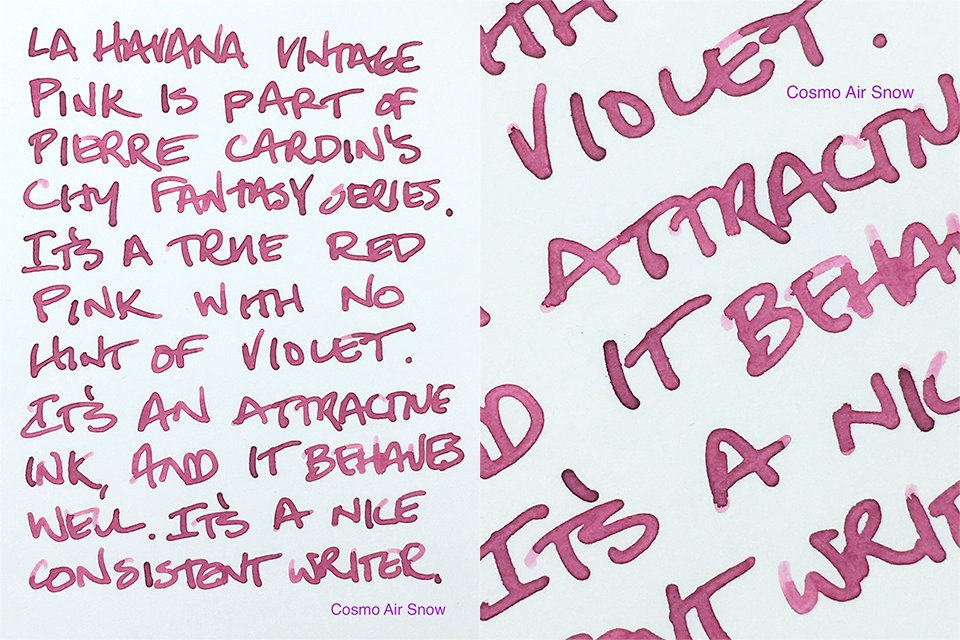 LA HAVANA VINTAGE
PINK IS PART OF
PIERRE CARDIN'S
CITY FANTASY SERIES.
IT'S A TRUE RED
PINK WITH NO
HINT OF VIOLET.
IT'S AN ATTRACTIVE
INK, AND IT BEHAVES
WELL. IT'S A NICE
CONSISTENT WRITER.
Cosmo Air Snow
VIOLET.
Cosmo Air Snow
ATTRACTIV
IT BEHA
IT'S A NIC
NT WRIT